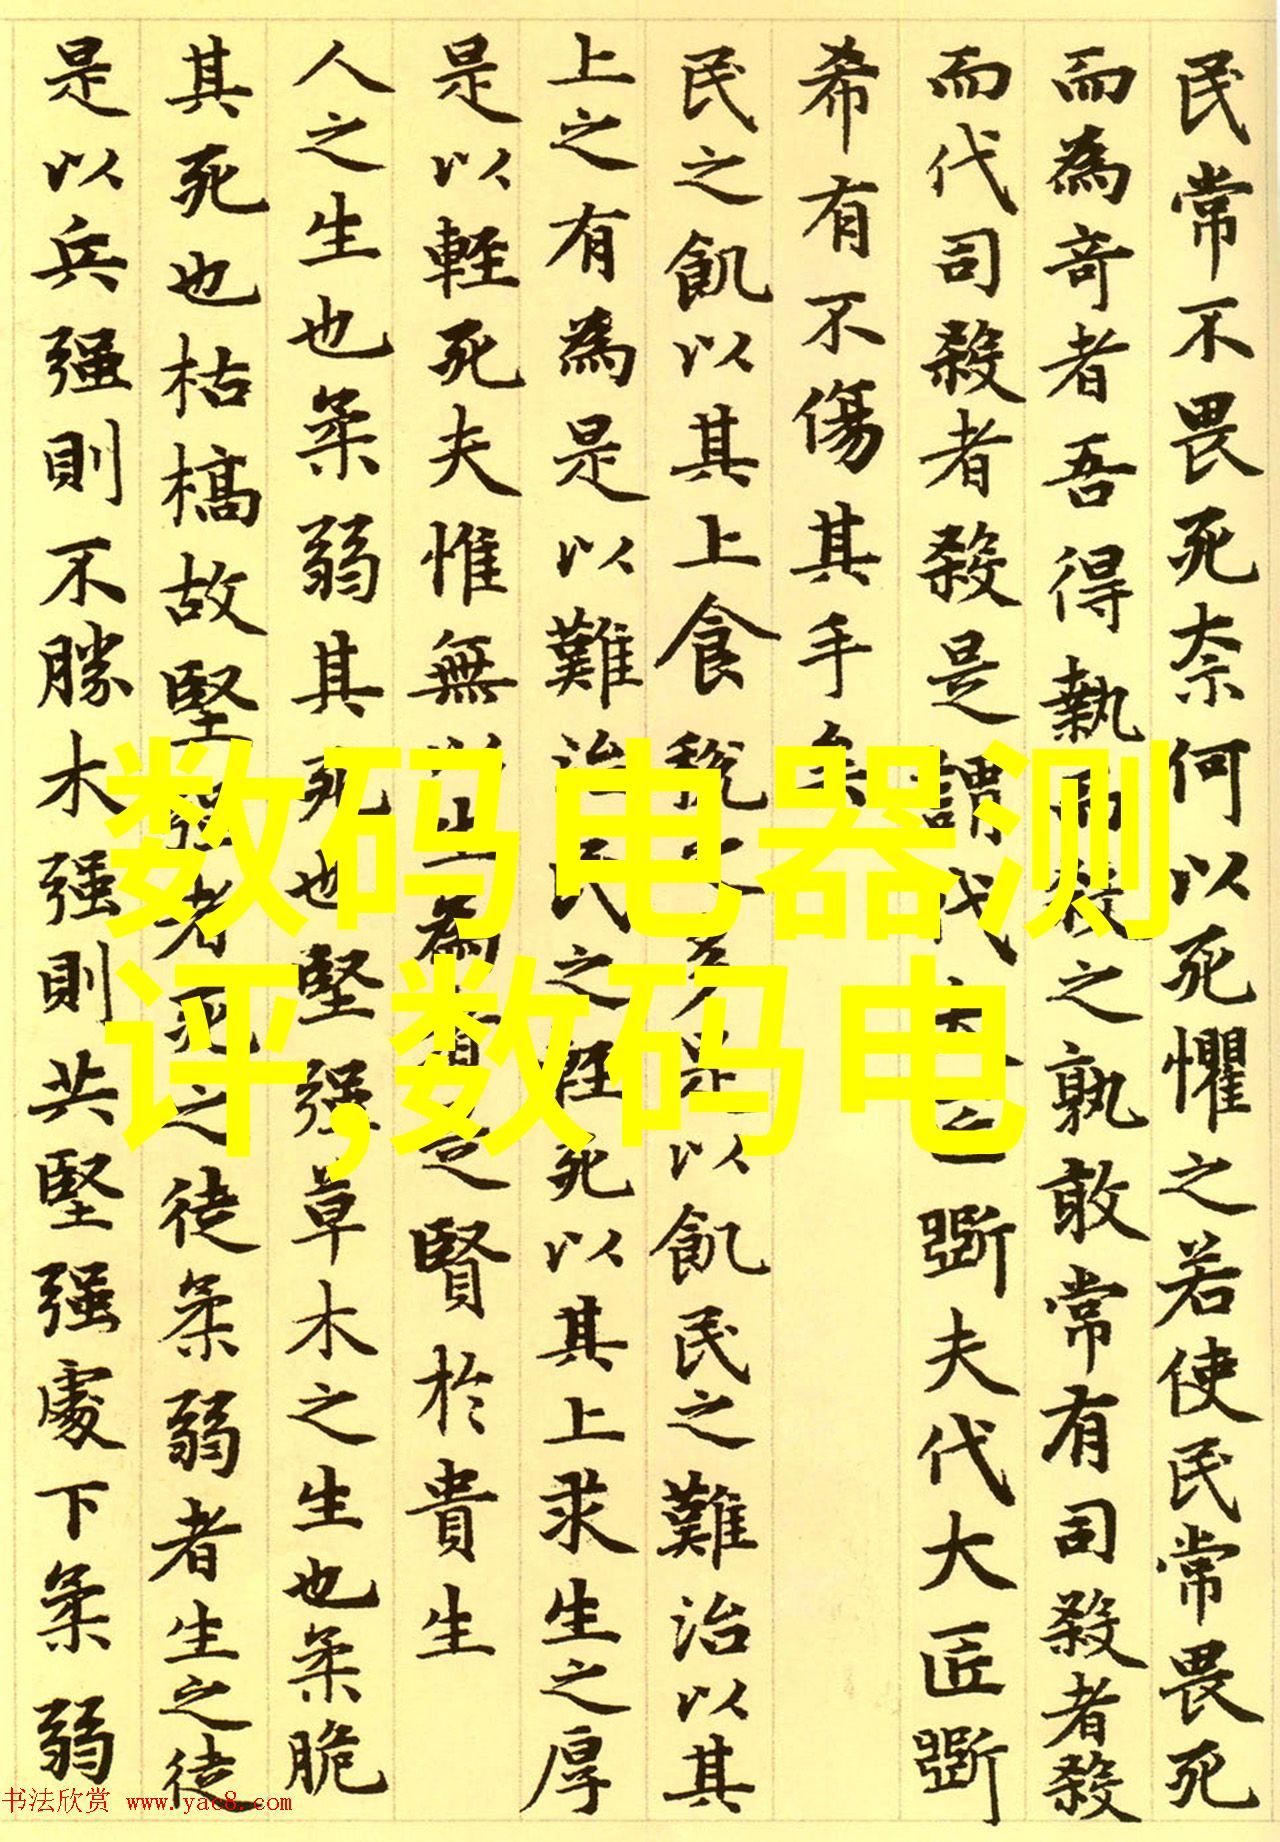 民常不畏死奈何以死懼之若使民常畏死
而為奇者吾得執而殺之孰敢常有司殺者殺
而代司殺者殺是謂代大匠斲夫代大匠斲
希有不傷其手矣
民之飢以其上食稅之多是以飢民之難治以其
上之有為是以難治民之輕死以其上求生之厚
是以輕死夫惟無以生為者是賢於貴生
人之生也柔弱其死也堅强草木之生也柔脆
其死也枯槁故堅强者死之徒柔弱者生之徒
是以兵强則不勝木强則共堅强處下柔弱
数码电器测
评,数码电
书法欣赏 www.yac8.com